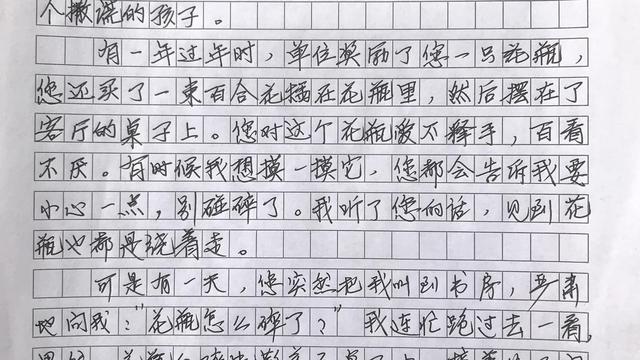 个撒谎的孩子。
有一年过年时，单位奖励了您一只花瓶，
您还买了一束百合花插在花瓶里，然后摆在了
客厅的桌子上。您对这个花瓶爱不释手，百看
不厌。有时候我想摸一摸它，您都会告诉我要
小心一点，别碰碎了。我听了您的话，见到花
瓶也都是绕着走。
可是有一天，您突然把我叫到书房，严肃
地问我：“花瓶怎么碎了？”我连忙跑过去一看，